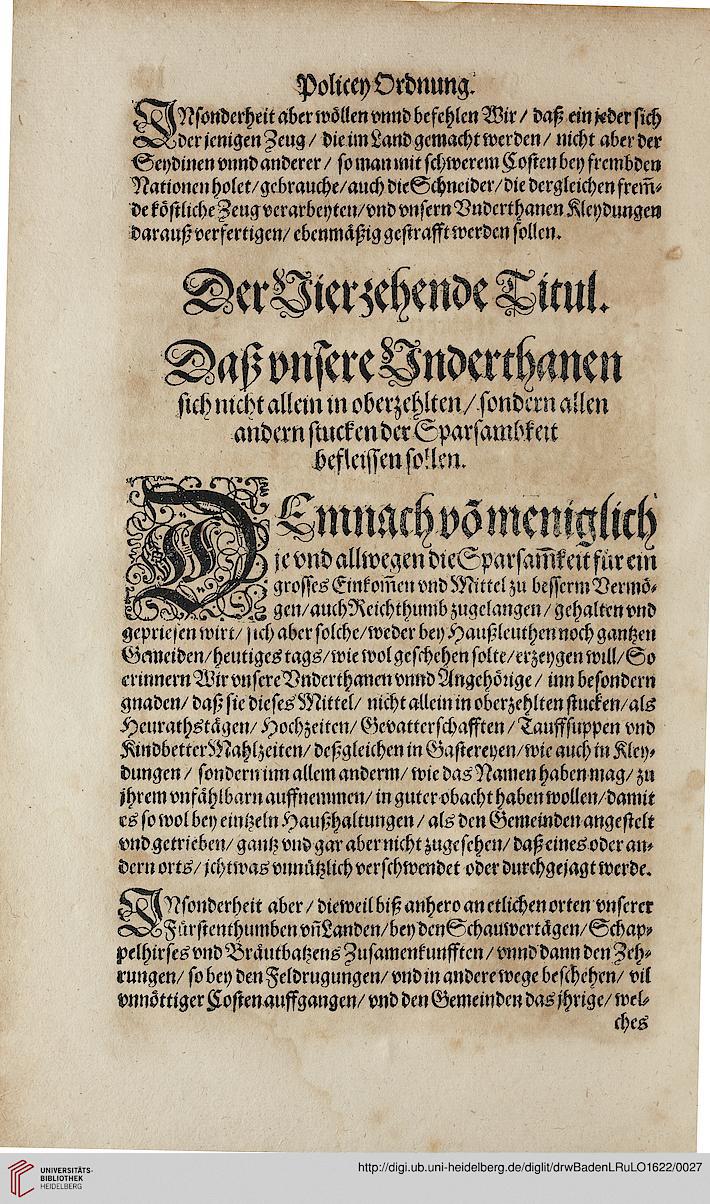 Policey Ordnung.
INsonderheit aber wöllen vnnd befehlen Wir / daß ein jeder sich
der jenigen Zeug / die im Land gemacht werden / nicht aber der
Seydinen vnnd anderer / so man mit schwerem Costen bey frembden
Nationen holet / gebrauche / auch die Schneider / die dergleichen frem̃-
de köstliche Zeug verarbeyten / vnd vnsern Vnderthanen Kleydungen
darauß verfertigen / ebenmäßig gestrafft werden sollen.
Der Vierzehende Titul.
Daß vnsere Vnderthanen
sich nicht allein in oberzehlten / sondern allen
andern stucken der Sparsambkeit
befleissen sollen.
DEmnach võ meniglich
je vnd allwegen die Sparsam̃keit für ein
grosses Einkom̃en vnd Mittel zu besserm Vermö-
gen / auch Reichthumb zugelangen / gehalten vnd
gepriesen wirt / sich aber solche / weder bey Haußleuthen noch gantzen
Gemeiden / heutiges tags / wie wol geschehen solte / erzeygen will / So
erinnern Wir vnsere Vnderthanen vnnd Angehörige / inn besondern
gnaden / daß sie dieses Mittel / nicht allein in oberzehlten stucken / als
Heurathstägen / Hochzeiten / Gevatterschafften / Tauffsuppen vnd
Kindbetter Mahlzeiten / deßgleichen in Gastereyen / wie auch in Kley-
dungen / sondern inn allem anderm / wie das Namen haben mag / zu
jhrem vnfählbarn auffnemmen / in guter obacht haben wollen / damit
es so wol bey eintzeln Haußhaltungen / als den Gemeinden angestelt
vnd getrieben / gantz vnd gar aber nicht zugesehen / daß eines oder an-
dern orts / ichtwas vnnützlich verschwendet oder durchgejagt werde.
INsonderheit aber / dieweil biß anhero an etlichen orten vnserer
Fürstenthumben vñ Landen / bey den Schauwertägen / Schap-
pelhirses vnd Bräutbatzens Zusamenkunfften / vnnd dann den Zeh-
rungen / so bey den Feldrugungen / vnd in andere wege beschehen / vil
vnnöttiger Costen auffgangen / vnd den Gemeinden das jhrige / wel-
ches
UNIVERSITÄTS-
BIBLIOTHEK
HEIDELBERG
http://digi.ub.uni-heidelberg.de/diglit/drwBadenLRuLO1622/0027